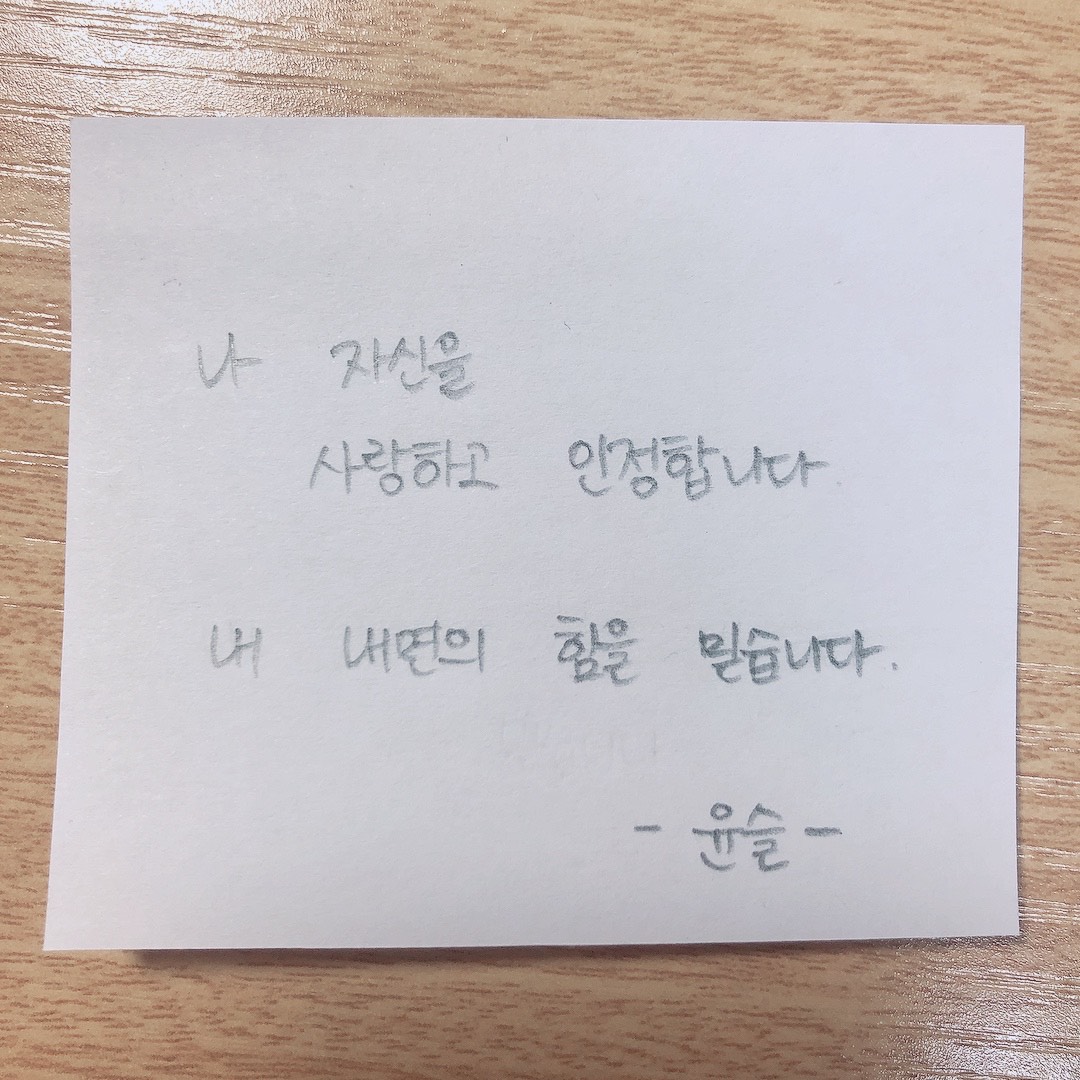 나 자신을
사랑하고 인정합니다.
내 내면의 힘을 믿습니다.
- 윤슬 -